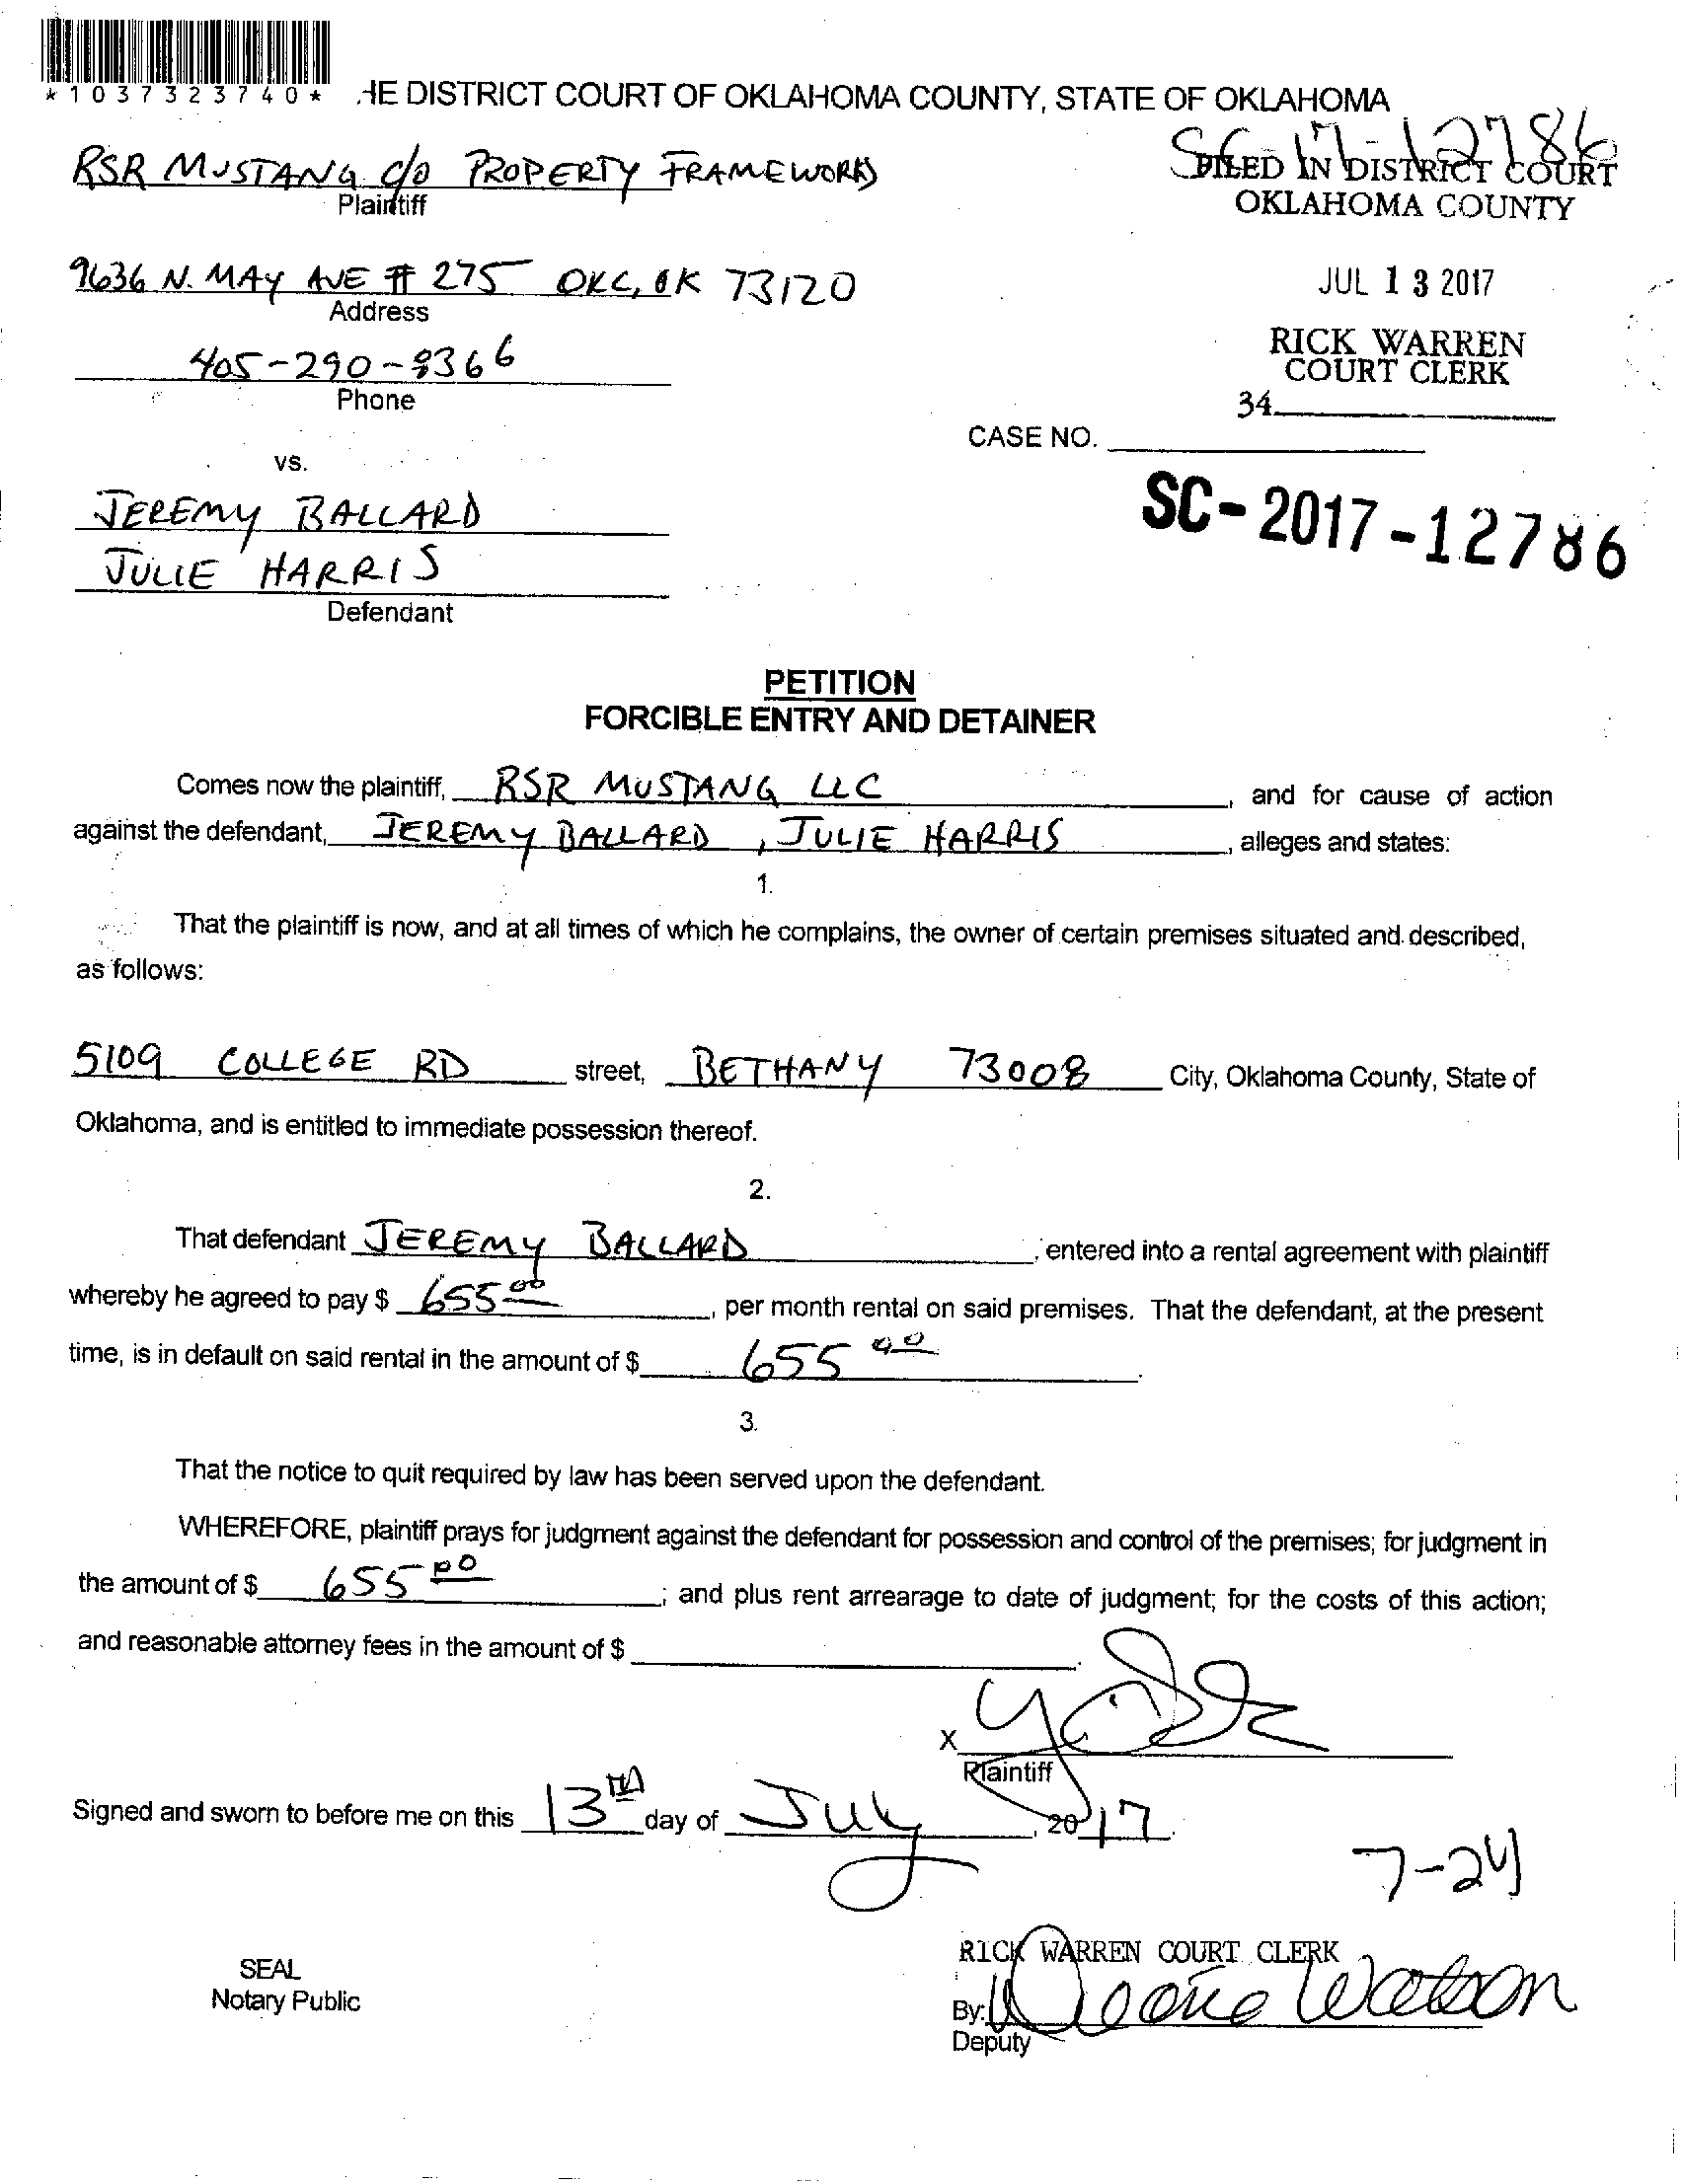 *1037323740*
HE DISTRICT COURT OF OKLAHOMA COUNTY, STATE OF OKLAHOMA
SC-17-12786
RSR MUSTANG c/o PROPERTY FRAMEWORKS
Plaintiff
FILED IN DISTRICT COURT
OKLAHOMA COUNTY
9636 N. MAY AVE # 275 OKC, OK 73120
Address
JUL 13 2017
405-290-8366
Phone
RICK WARREN
COURT CLERK
34
CASE NO.
vs.
SC-2017-12786
JEREMY BALLARD
JULIE HARRIS
Defendant
PETITION
FORCIBLE ENTRY AND DETAINER
Comes now the plaintiff, RSR MUSTANG LLC, and for cause of action
against the defendant, JEREMY BALLARD, JULIE HARRIS, alleges and states:
1.
That the plaintiff is now, and at all times of which he complains, the owner of certain premises situated and described,
as follows:
5109 COLLEGE RD street, BETHANY 73008 City, Oklahoma County, State of
Oklahoma, and is entitled to immediate possession thereof.
2.
That defendant JEREMY BALLARD, entered into a rental agreement with plaintiff
whereby he agreed to pay $ 655 00, per month rental on said premises. That the defendant, at the present
time, is in default on said rental in the amount of $ 655 00.
3.
That the notice to quit required by law has been served upon the defendant.
WHEREFORE, plaintiff prays for judgment against the defendant for possession and control of the premises; for judgment in
the amount of $ 655 00; and plus rent arrearage to date of judgment; for the costs of this action;
and reasonable attorney fees in the amount of $ .
X
Plaintiff
Signed and sworn to before me on this 13TH day of July, 2017.
7-24
RICK WARREN COURT CLERK
SEAL
Notary Public
By: Watson
Deputy